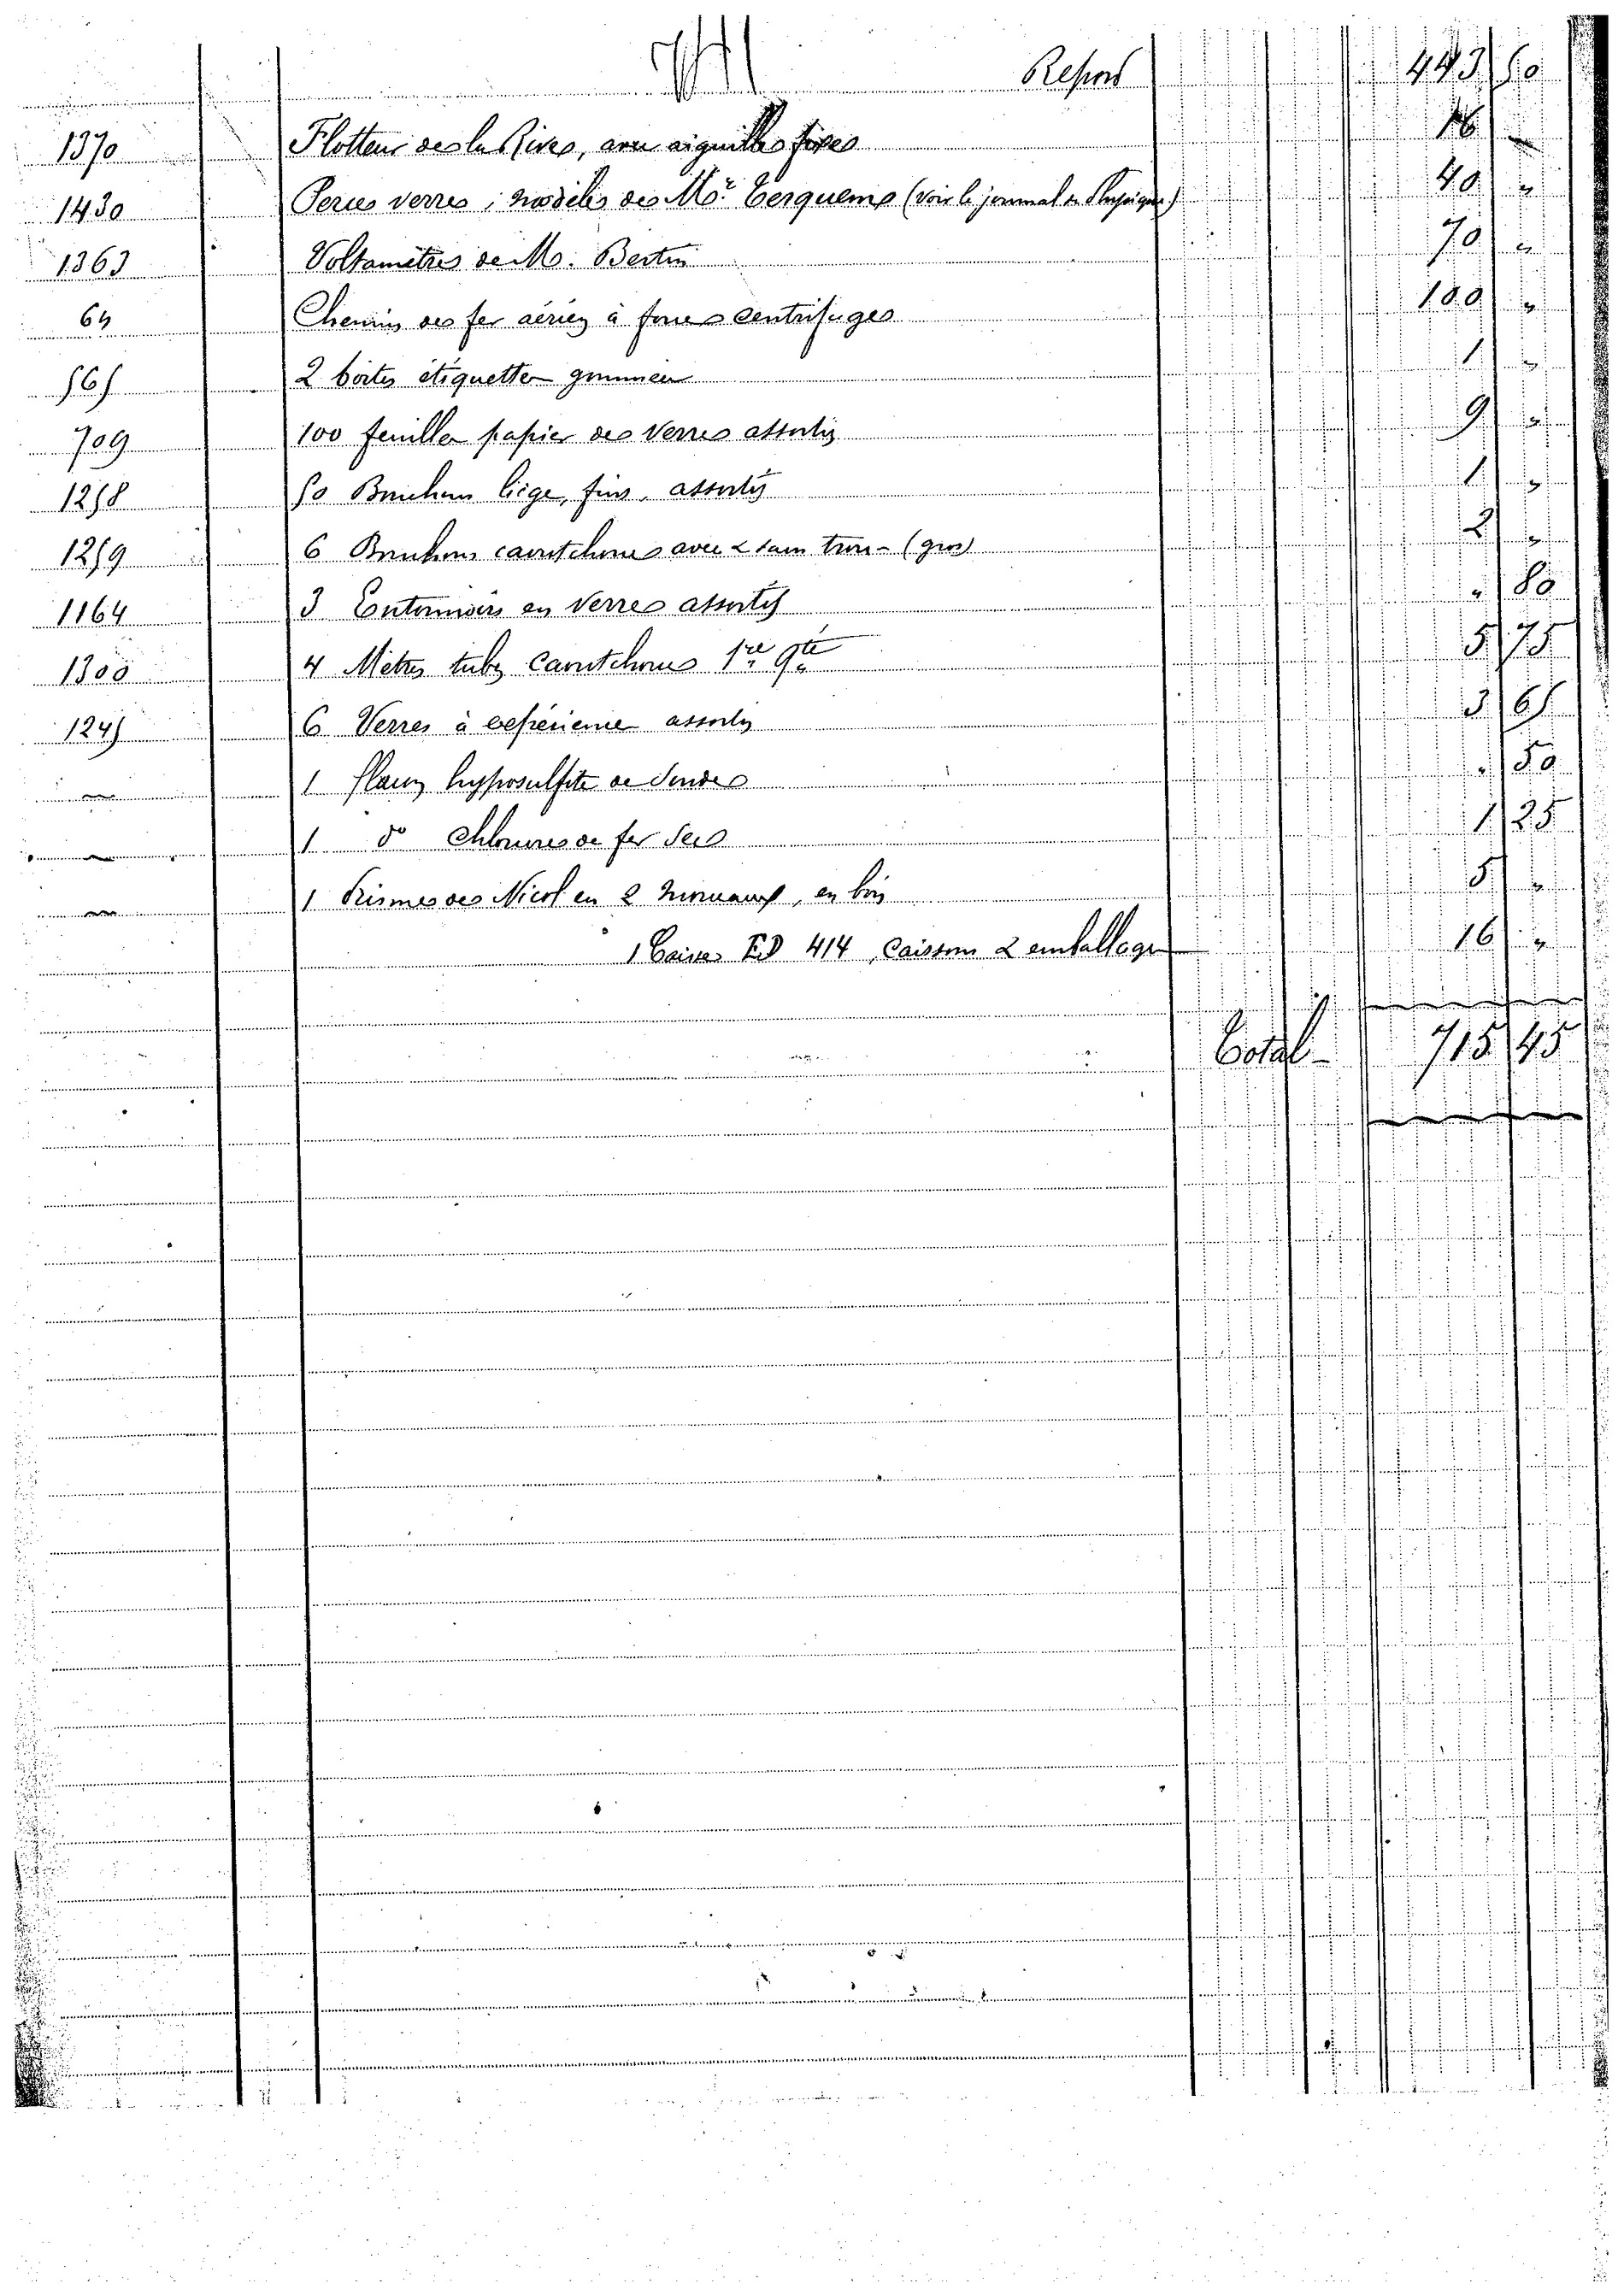 Report 443 50
1370 Flotteur de la Rive, avec aiguilles fixes 16 "
1430 Perce verres, modèle de Mr. Terquem (voir le journal de Physique) 40 "
1363 Voltamètre de M. Bertin 70 "
64 Chemin de fer aérien à force centrifuge 100 "
565 2 boîtes étiquettes gommées 1 "
709 100 feuilles papier de verre assortis 9 "
1258 50 Bouchons liège, fins, assortis 1 "
1259 6 Bouchons caoutchouc avec & sans trou - (gros) 2 "
1164 3 Entonnoirs en verre assortis " 80
1300 4 Mètres tube Caoutchouc 1re qté 5 75
1245 6 Verres à expérience assortis 3 65
" 1 flacon hyposulfite de Soude " 50
" 1 do Chlorure de fer Sec 1 25
" 1 Prisme de Nicol en 2 morceaux, en bois 5 "
1 Caisse ED 414, Caisson & emballage 16 "
Total - 715 45